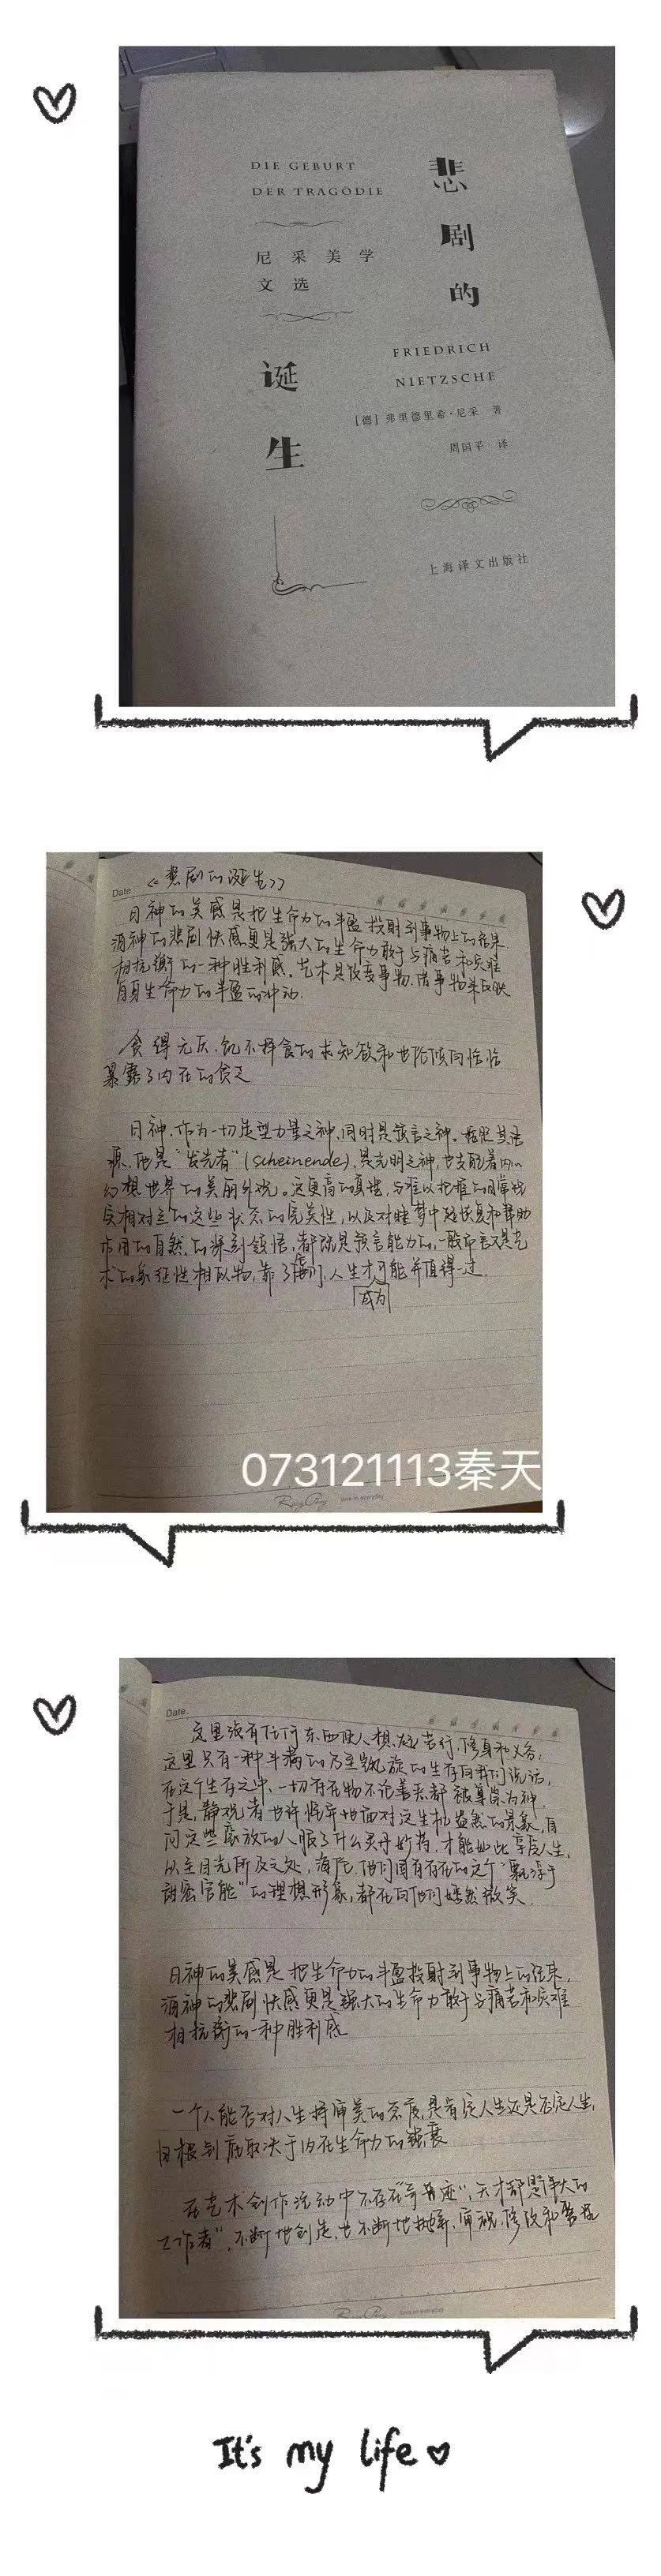 DIE GEBURT
DER TRAGÖDIE
尼采美学
文选
悲剧的
诞生
FRIEDRICH
NIETZSCHE
[德] 弗里德里希·尼采 著
周国平 译
上海译文出版社
Date.
《悲剧的诞生》
日神的美感是把生命力的丰盈投射到事物上的结果,
酒神的悲剧快感更是强大的生命力敢于与痛苦和灾难
相抗衡的一种胜利感。艺术是改变事物、借事物来反映
自身生命力的丰盈的冲动.
贪得无厌、饥不择食的求知欲和世俗倾向恰恰
暴露了内在的贫乏
日神,作为一切造型力量之神,同时是预言之神。按照其语
源,他是"发光者"(scheinende),是光明之神,也支配着内心
幻想世界的美丽外观。这更高的真理,与难以把握的日常现
实相对立的这些状态的完美性,以及对睡梦中起恢复和帮助
作用的自然的深刻领悟,都既是预言能力的、一般而言又是艺
术的象征性相似物,靠了它们,人生才可能并值得一过.
成为
073121113秦天
Date.
这里没有任何东西使人想起苦行、修身和义务;
这里只有一种丰满的乃至凯旋的生存向我们说话,
在这个生存之中,一切存在物不论善恶都被尊崇为神.
于是,静观者也许惶于地面对这生机盎然的景象,自
问这些豪放的人服了什么灵丹妙药,才能如此享受人生,
以至目光所及之处,海伦,他们固有存在的这个"飘浮于
甜蜜官能"的理想形象,都在向他们嫣然微笑.
日神的美感是把生命力的丰盈投射到事物上的结果,
酒神的悲剧快感更是强大的生命力敢于与痛苦和灾难
相抗衡的一种胜利感
一个人能否对人生持审美的态度,是肯定人生还是否定人生,
归根到底取决于内在生命力的强衰
在艺术创作活动中不存在"奇迹",天才都是"伟大的
工作者",不断地创造,也不断地抛弃、审视、修改和整理
It's my life